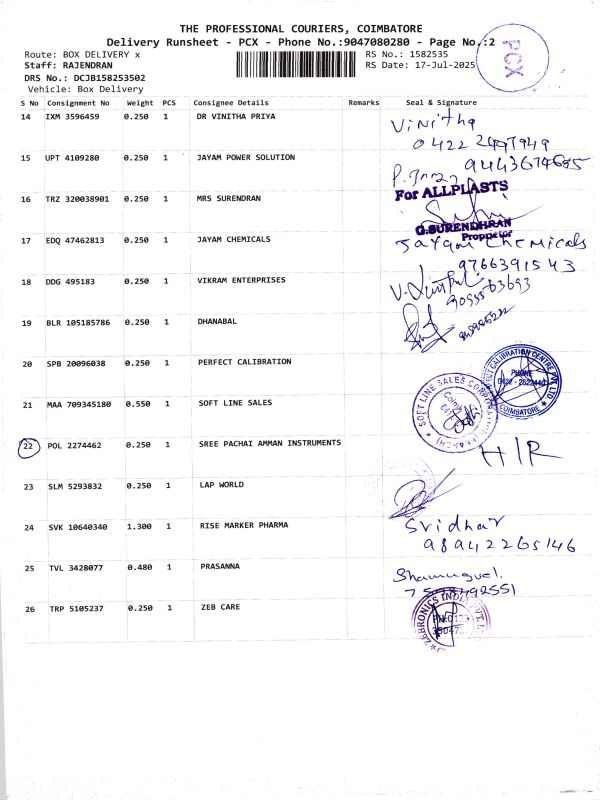 THE PROFESSIONAL COURIERS, COIMBATORE
Delivery Runsheet - PCX - Phone No.:9047080280 - Page No.:2 -
PCX
Route: BOX DELIVERY x
RS No.: 1582535
Staff: RAJENDRAN
RS Date: 17-Jul-2025
DRS No.: DCJB158253502
Vehicle: Box Delivery
S No Consignment No Weight PCS Consignee Details Remarks Seal & Signature
14 IXM 3596459 0.250 1 DR VINITHA PRIYA Vinitha
0422 2497949
15 UPT 4109280 0.250 1 JAYAM POWER SOLUTION
9443674685
16 TRZ 320038901 0.250 1 MRS SURENDRAN For ALLPLASTS
G.SURENDHRAN
Proprietor
17 EDQ 47462813 0.250 1 JAYAM CHEMICALS Jayam Chemicals
9766391543
18 DDG 495183 0.250 1 VIKRAM ENTERPRISES
19 BLR 105185786 0.250 1 DHANABAL
20 SPB 20096038 0.250 1 PERFECT CALIBRATION
PHONE
COIMBATORE
21 MAA 709345180 0.550 1 SOFT LINE SALES SOFT LINE SALES
22 POL 2274462 0.250 1 SREE PACHAI AMMAN INSTRUMENTS H/R
23 SLM 5293832 0.250 1 LAP WORLD
24 SVK 10640340 1.300 1 RISE MARKER PHARMA Sridhar
98942265146
25 TVL 3428077 0.480 1 PRASANNA
26 TRP 5105237 0.250 1 ZEB CARE ZEBRONICS INDIA PVT. LTD